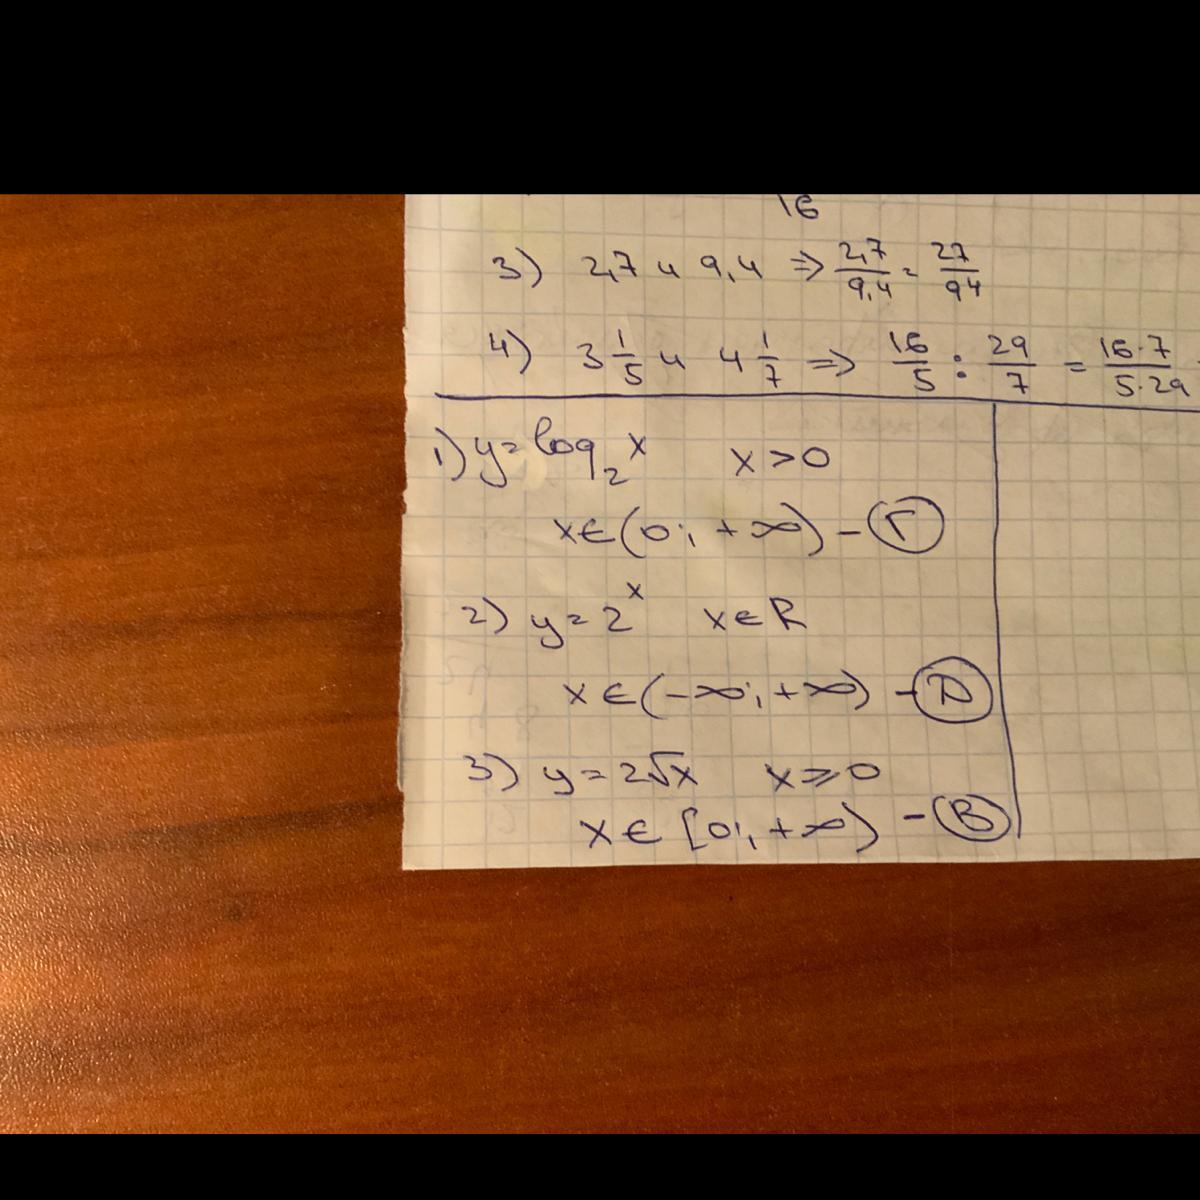 16
3) 2,7 и 9,4 ⇒ 2,7/9,4 = 27/94
4) 3 1/5 и 4 1/7 ⇒ 16/5 : 29/7 = 16·7/5·29
1) y = log₂ x x > 0
x ∈ (0; +∞) - Г
2) y = 2ˣ x ∈ R
x ∈ (-∞; +∞) - Д
3) y = 2√x x ⩾ 0
x ∈ [0; +∞) - В